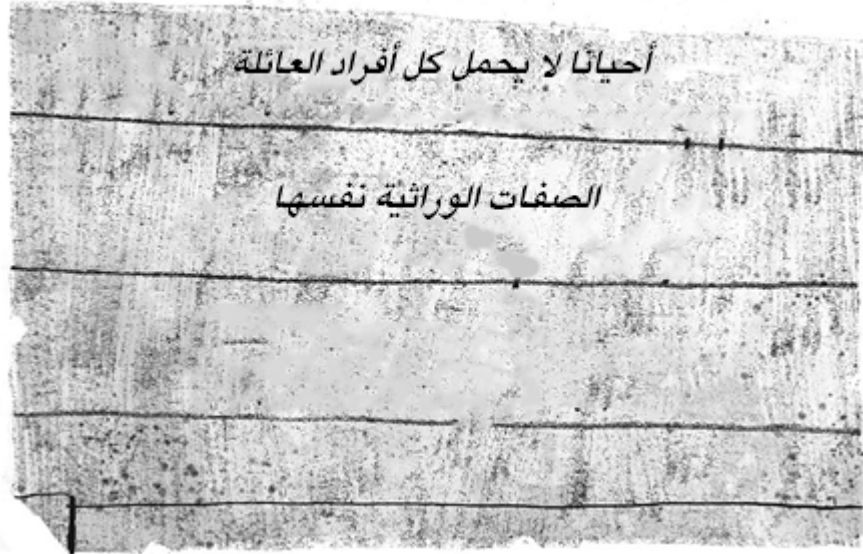 أحيانًا لا يحمل كل أفراد العائلة
الصفات الوراثية نفسها